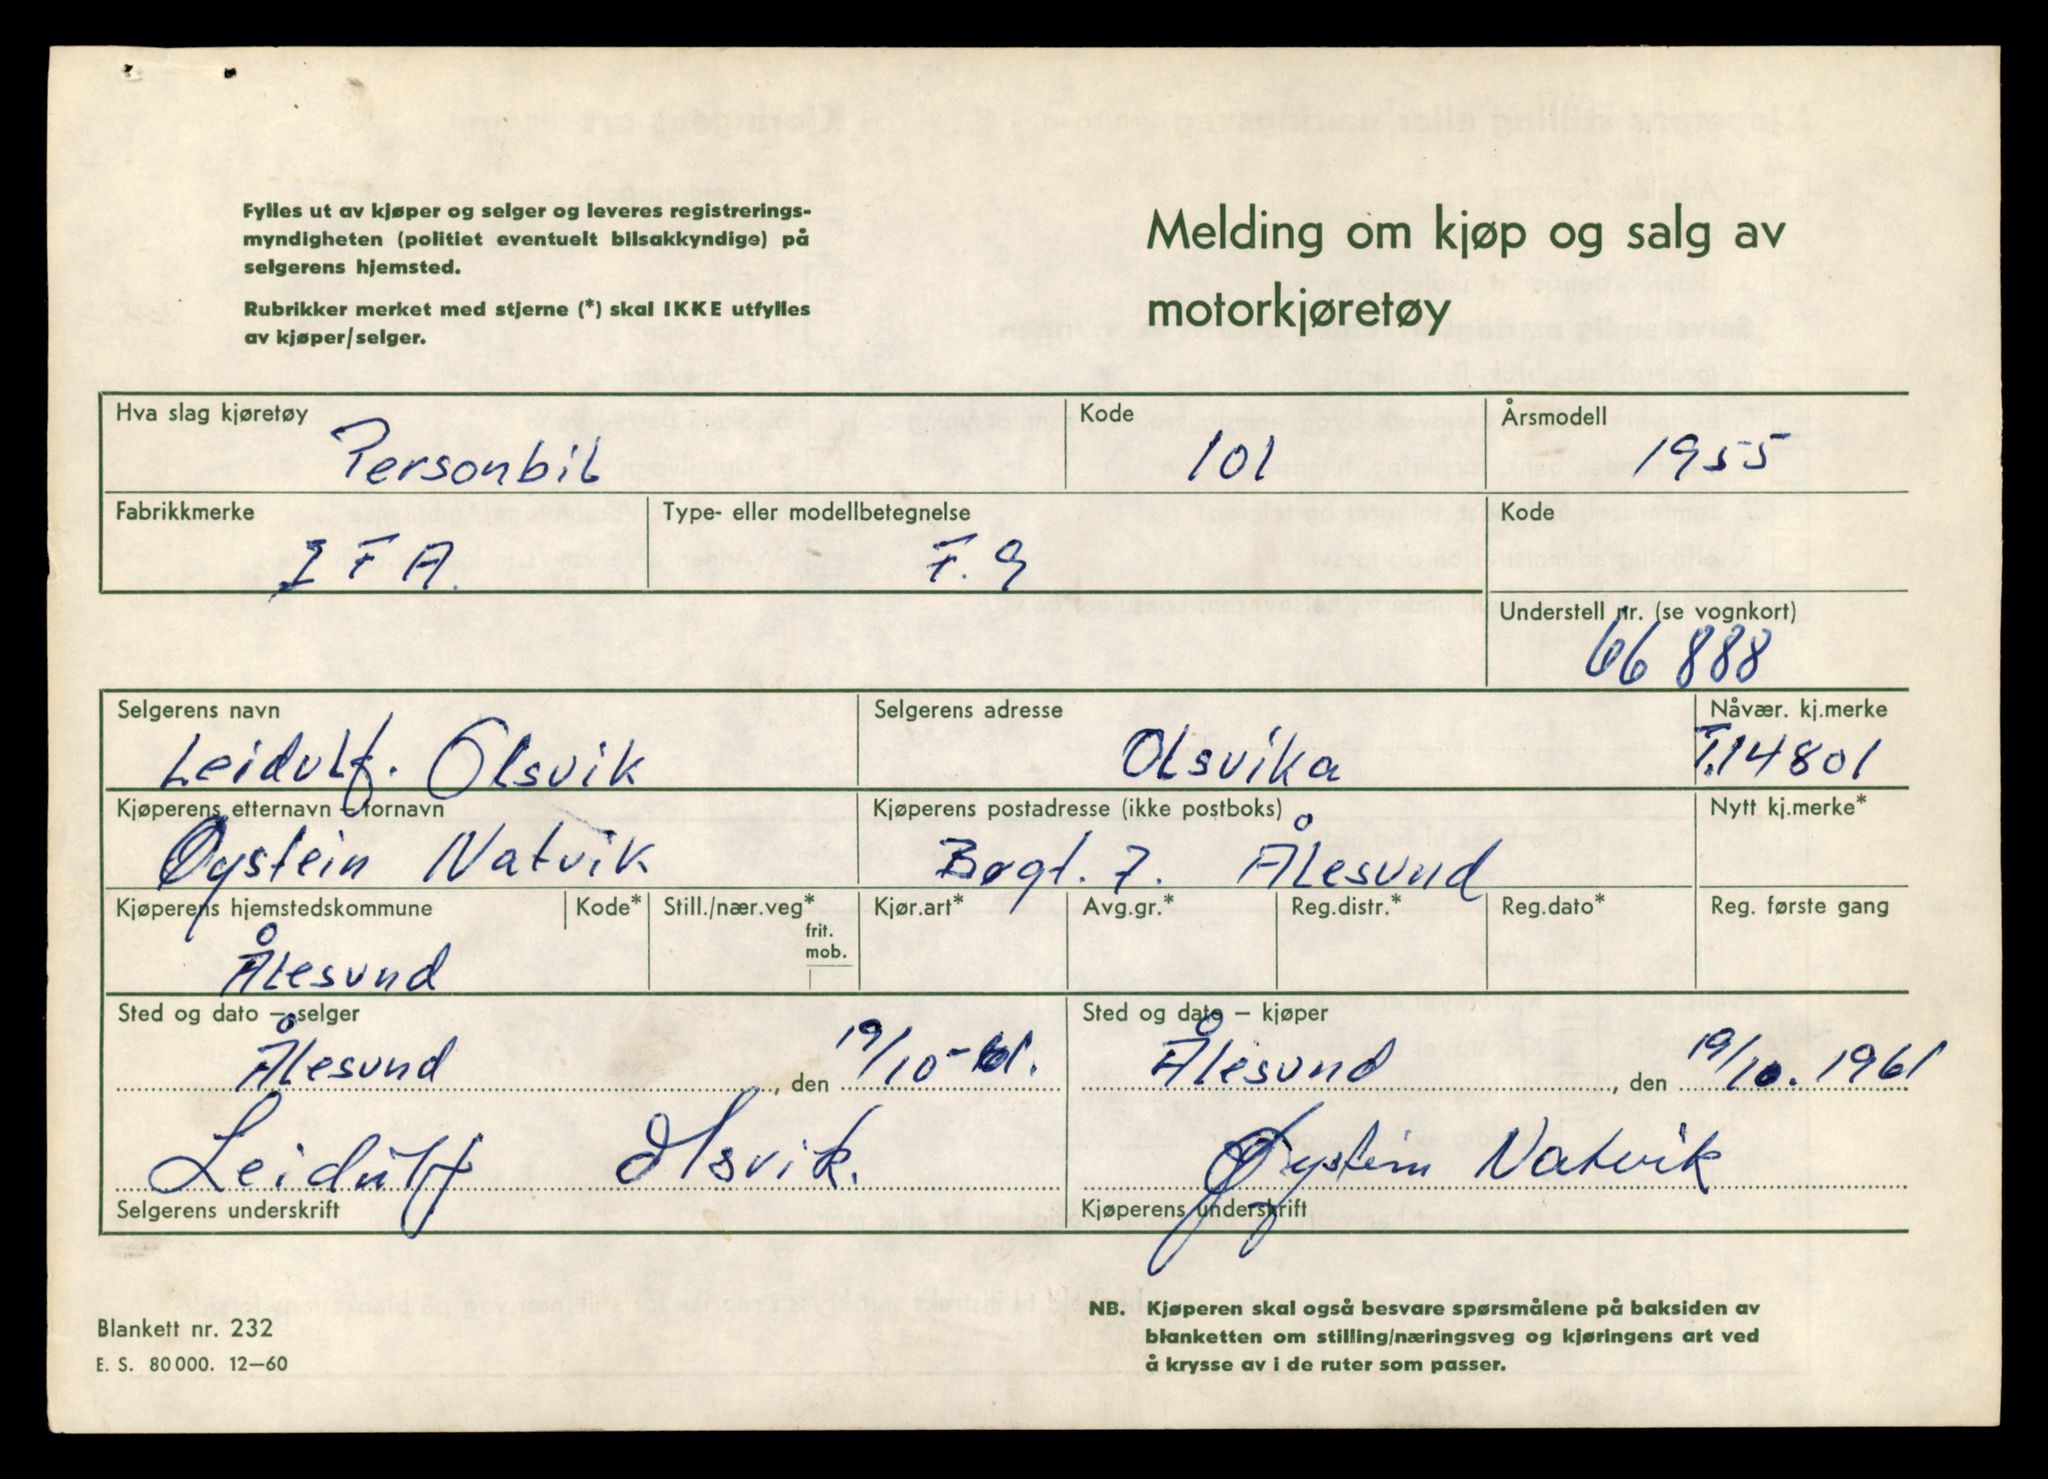 Fylles ut av kjøper og selger og leveres registrerings-
myndigheten (politiet eventuelt bilsakkyndige) på
selgerens hjemsted.
Rubrikker merket med stjerne (*) skal IKKE utfylles
av kjøper/selger.
Melding om kjøp og salg av
motorkjøretøy
Hva slag kjøretøy Kode Årsmodell
Personbil 101 1955
Fabrikkmerke Type- eller modellbetegnelse Kode
I F A. F. 9
Understell nr. (se vognkort)
66 888
Selgerens navn Selgerens adresse Nåvær. kj.merke
Leidulf. Olsvik Olsvika T.14801
Kjøperens etternavn – fornavn Kjøperens postadresse (ikke postboks) Nytt kj.merke*
Øystein Natvik Bøgt. 7. Ålesund
Kjøperens hjemstedskommune Kode* Still./nær.veg* Kjør.art* Avg.gr.* Reg.distr.* Reg.dato* Reg. første gang
frit.
mob.
Ålesund
Sted og dato – selger Sted og dato – kjøper
Ålesund, den 19/10-61. Ålesund, den 19/10. 1961
Leidulf Olsvik. Øystein Natvik
Selgerens underskrift Kjøperens underskrift
NB. Kjøperen skal også besvare spørsmålene på baksiden av
blanketten om stilling/næringsveg og kjøringens art ved
å krysse av i de ruter som passer.
Blankett nr. 232
E. S. 80 000. 12–60